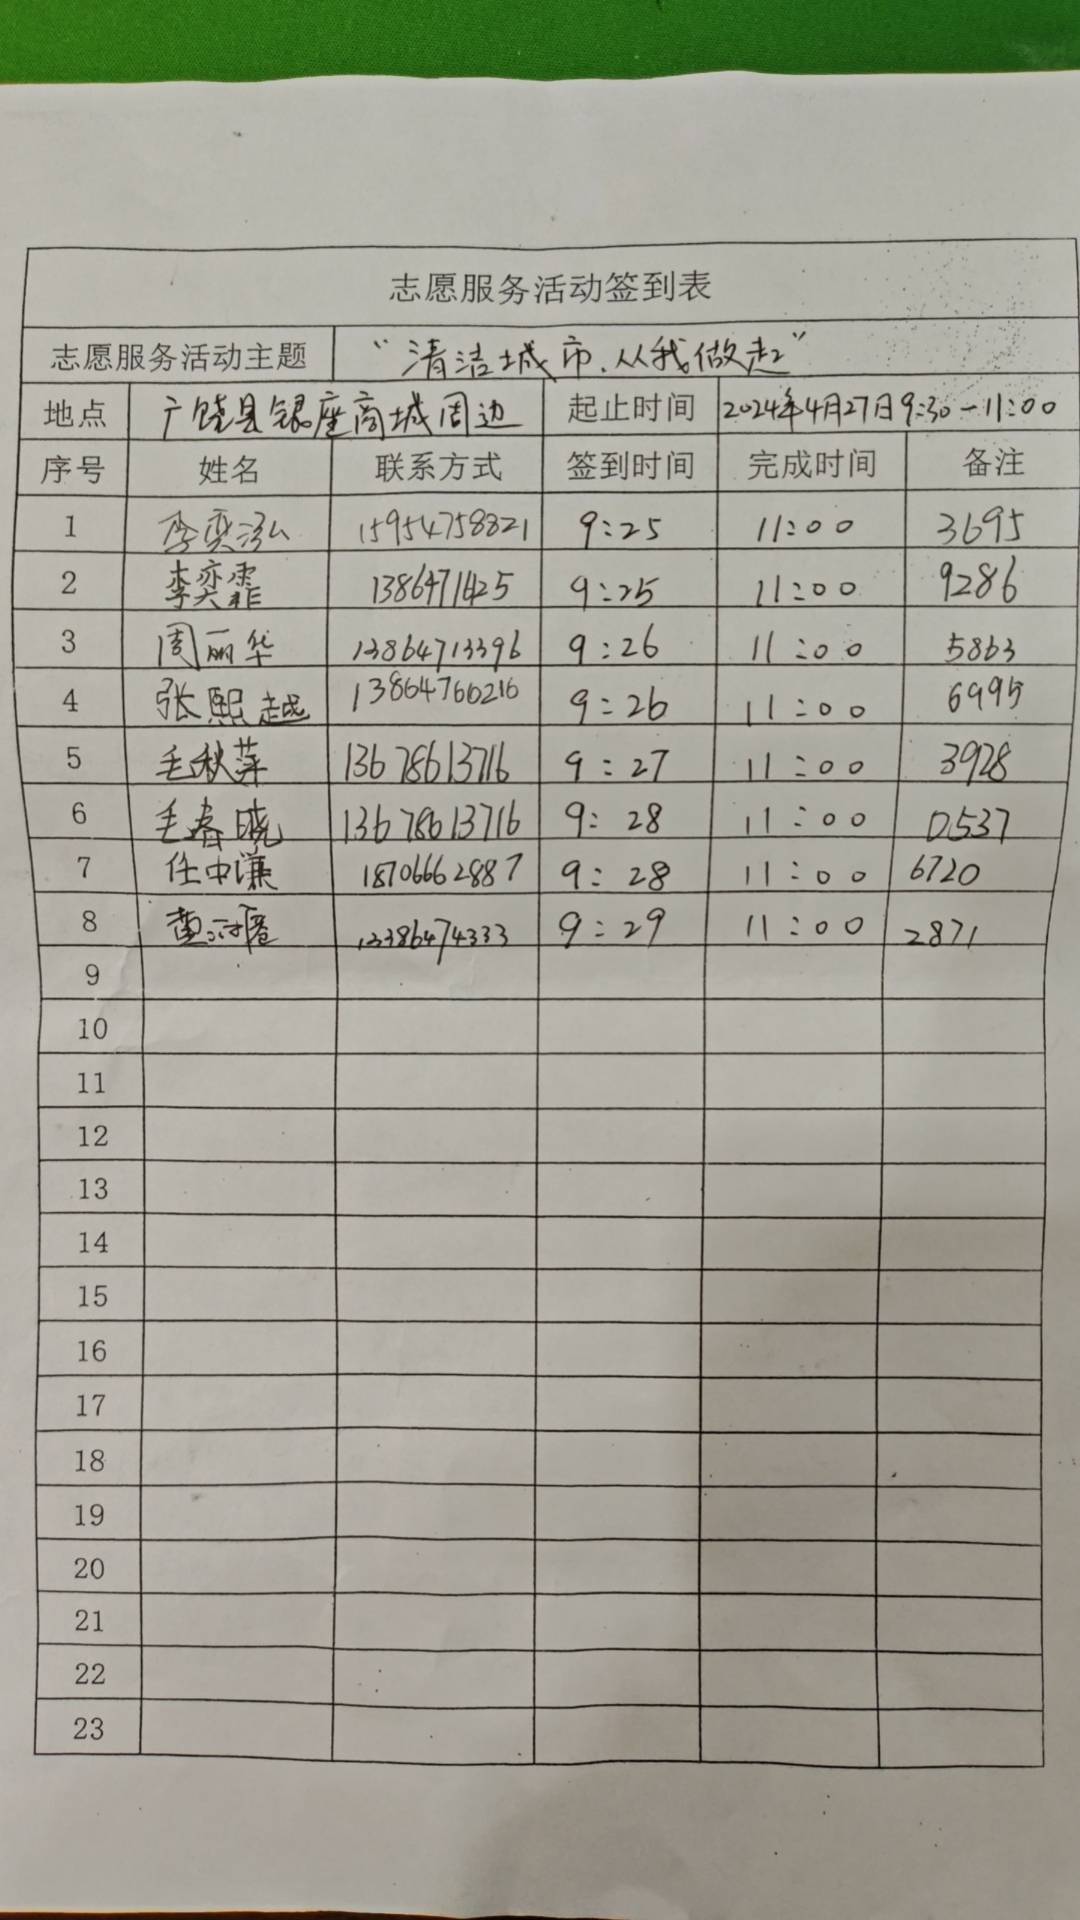 志愿服务活动签到表
志愿服务活动主题 “清洁城市.从我做起”
地点 广饶县银座商城周边 起止时间 2024年4月27日9:30-11:00
序号 姓名 联系方式 签到时间 完成时间 备注
1 李奕泓 15954758821 9:25 11:00 3695
2 李奕霏 1386471425 9:25 11:00 9286
3 周丽华 13864713396 9:26 11:00 5863
4 张熙越 13864766216 9:26 11:00 6995
5 毛秋萍 13678613716 9:27 11:00 3928
6 毛春晓 13678613716 9:28 11:00 0537
7 任中谦 18706662887 9:28 11:00 6720
8 黄 13386474333 9:29 11:00 2871
9
10
11
12
13
14
15
16
17
18
19
20
21
22
23